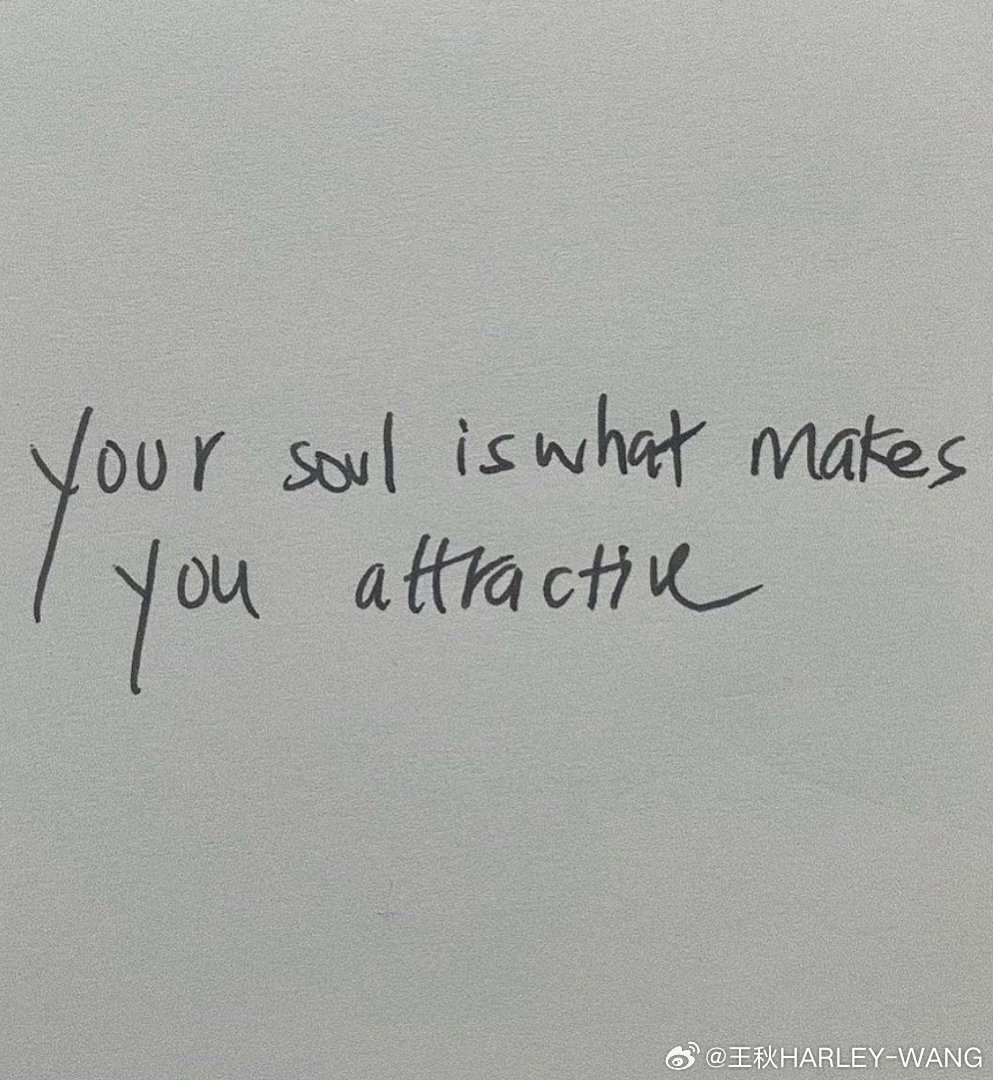 your soul is what makes
you attractive
@王秋HARLEY-WANG